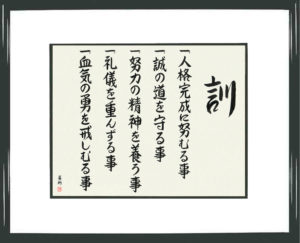 訓
一人格完成に努むる事
一誠の道を守る事
一努力の精神を養う事
一礼儀を重んずる事
一血気の勇を戒しむる事